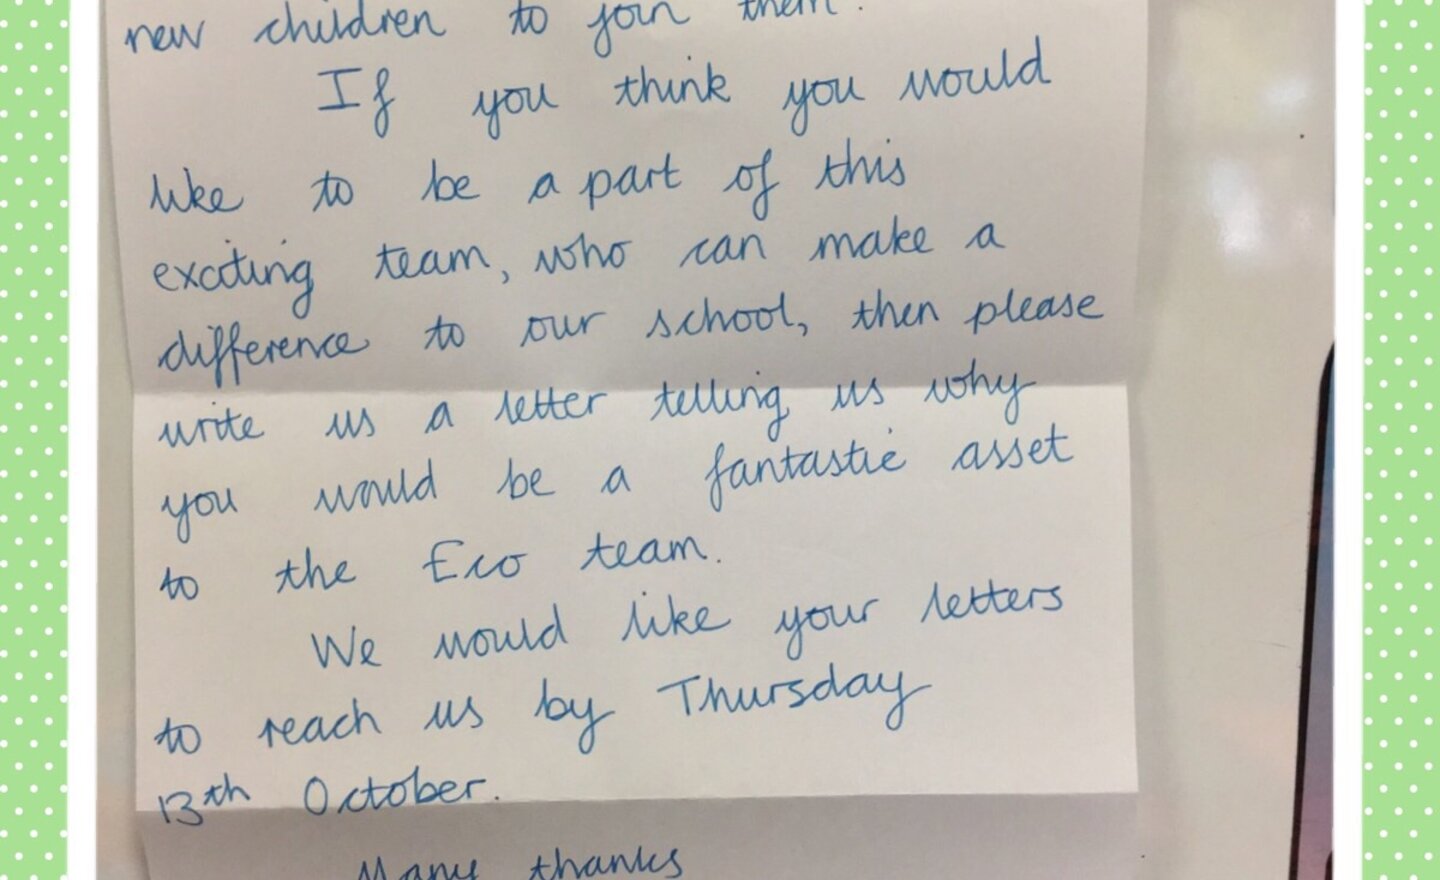 new children to join them.
If you think you would
like to be a part of this
exciting team, who can make a
difference to our school, then please
write us a letter telling us why
you would be a fantastic asset
to the Eco team.
We would like your letters
to reach us by Thursday
13th October.
Many thanks